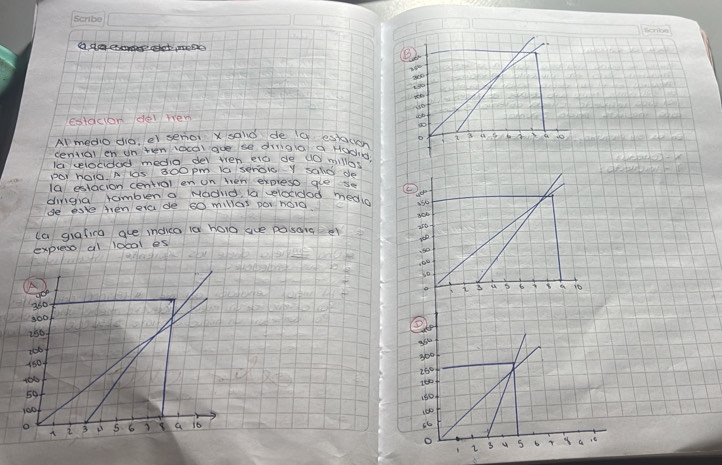 Scribe
Estacion del tren
Al medio dia, el señor X salió de la estacion
central en un tren local que se dirigía a Madrid,
la velocidad media del tren era de 40 millas
por hora. A las 300 pm la señora Y salio de
la estacion central en un tren expreso que se
dirigia tambien a Madrid, la velocidad media
de este tren era de 60 millas por hora.
La grafica que indica la hora que pasara el
expreso al local es
A
400
350
300
250
200
150
100
50
0 1 2 3 4 5 6 7 8 9 10
Scribe
B
0 1 2 3 4 5 6 7 8 9 10
C
400
350
300
250
200
150
100
50
0 1 2 3 4 5 6 7 8 9 10
D
400
350
300
250
200
150
100
50
0 1 2 3 4 5 6 7 8 9 10